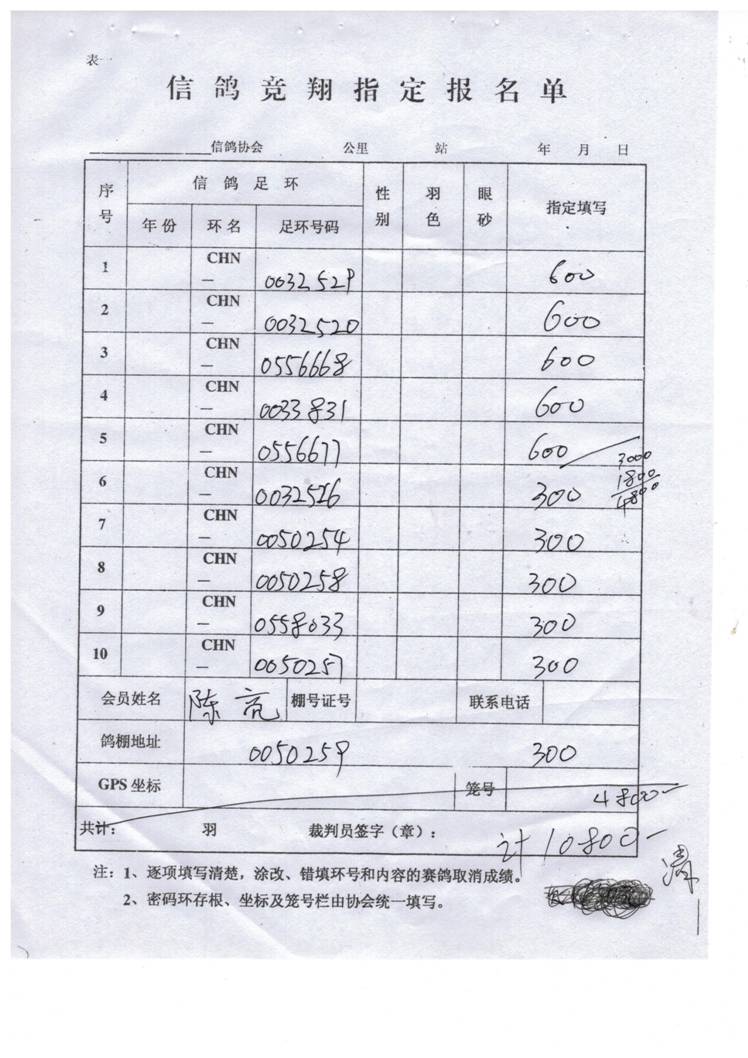 表一
信鸽竞翔指定报名单
信鸽协会 公里 站 年 月 日
序号 信鸽足环 性别 羽色 眼砂 指定填写
年份 环名 足环号码
1 CHN — 0032529 600
2 CHN — 0032520 600
3 CHN — 0556668 600
4 CHN — 0033831 600
5 CHN — 0556677 600
3000
6 CHN — 0032526 300 1800
4800
7 CHN — 0050254 300
8 CHN — 0050258 300
9 CHN — 0558033 300
10 CHN — 0050257 300
会员姓名 陈亮 棚号证号 联系电话
鸽棚地址 0050259 300
GPS坐标 笼号 4800—
共计: 羽 裁判员签字(章): 计10800—
注:1、逐项填写清楚,涂改、错填环号和内容的赛鸽取消成绩。 清
2、密码环存根、坐标及笼号栏由协会统一填写。